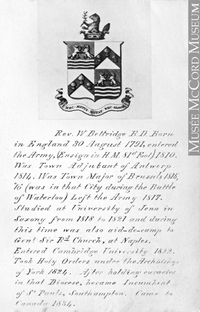 Rev. W Bettridge B.D. Born
in England 30 August 1791, entered
the Army, (Ensign in H.M. 81st Foot) 1810.
Was Town Adjutant of Antwerp
1814. Was Town Major of Brussels 1815,
16 (was in that City during the Battle
of Waterloo) Left the Army 1817.
Studied at University of Jena in
Saxony from 1818 to 1821 and during
this time was also aid-de-camp to
Genl Sir Rd Church, at Naples.
Entered Cambridge University 1822.
Took Holy Orders under the Archbishop
of York 1824. After holding curacies
in that Diocese, became Incumbent
of St Pauls, Southampton. Came to
Canada 1834.
MUSÉE McCORD MUSEUM